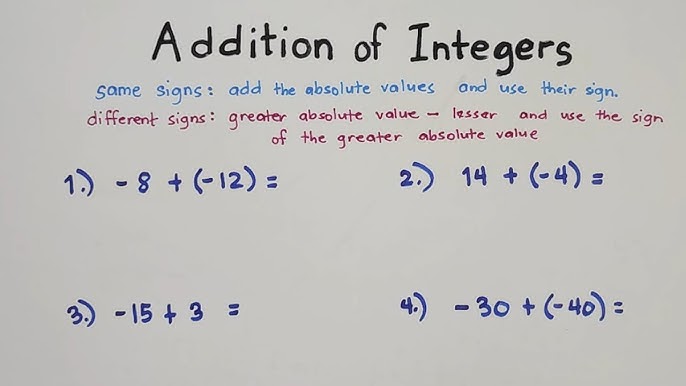 Addition of Integers
same signs: add the absolute values and use their sign.
different signs: greater absolute value - lesser and use the sign
of the greater absolute value
1.) -8 + (-12) =
2.) 14 + (-4) =
3.) -15 + 3 =
4.) -30 + (-40) =